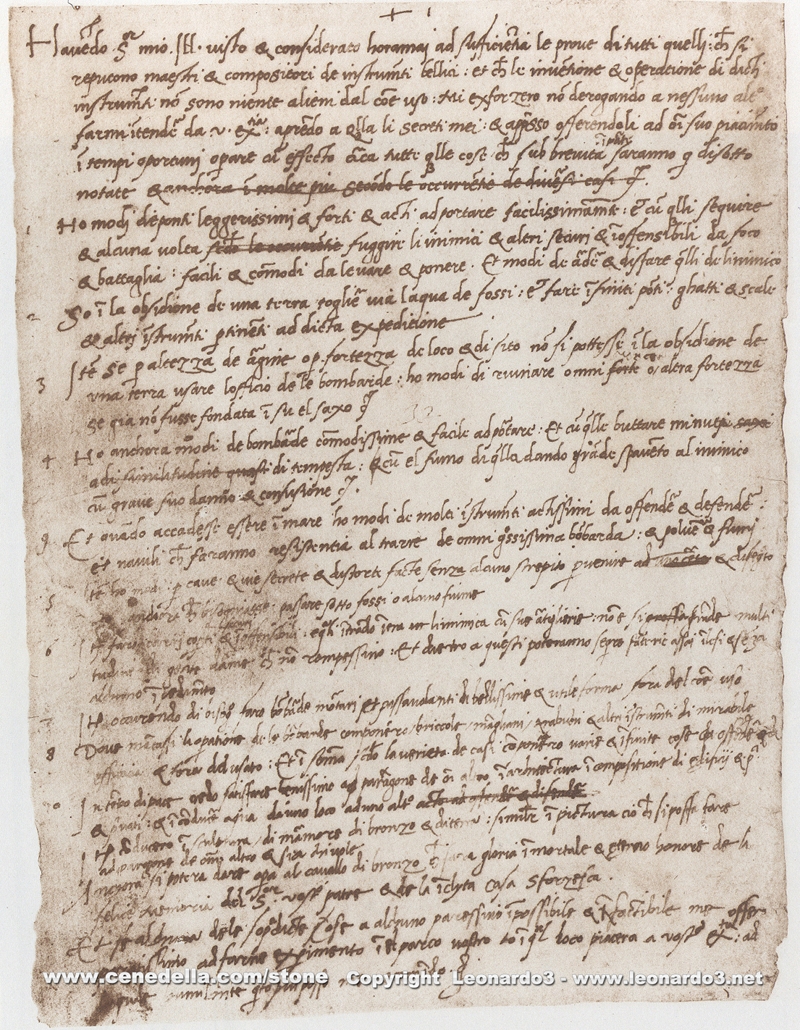 +
Havēdo Sor mio Ill. visto & considerato horamai ad sufficiētia le prove di tutti quelli: ch si
reputono maestri & compositori de instrumti bellici: et ch le inventione & operatione di dicti
instrumti nō sono niente alieni dal cōe uso: Mi exforzero nō derogando a nessuno altro
farmi ītendē da v. exa: aprēdo a qlla li secreti mei: & appsso offerendoli ad oi suo piacimto
ī tempi oportuni opare cū effecto circa tutte qlle cose ch sub brevita saranno q disotto
notate & anchora ī molte piu secōdo le occurrētie de divesi casi
Ho modi de pōti leggerissimi & forti & acti ad portare facilissimamte: et cū qlli seguire
& alcuna volta fuggire li inimici & altri securi & īoffensibili da foco
& battaglia: facili & cōmodi da levare & ponere. Et modi de ardē & disfare qlli de linimico
2 So ī la obsidione de una terra toglier via laqua de fossi: et fare īfiniti pōti ghatti & scale
& altri īstrumti ptinēti ad dicta expeditione
3 Itē se p altezza de argine o p fortezza de loco & di sito nō si pottesse ī la obsidione de
una terra usare lofficio de le bombarde: ho modi di ruinare omni forte o altra fortezza
se gia nō fusse fondata ī su el saxo
4 Ho anchora modi de bombarde cōmodissime & facile ad portare: Et cū qlle buttare minuti saxi
ad similitudine quasi di tempesta: & cū el fumo di qlla dando grāde spavēto al inimico
cū grave suo danno & cōfusione
9 Et quādo accadesse essere ī mare ho modi de molti īstrumti actissimi da offendē & defendē:
et navili ch faranno resistentia al trarre de omni grossissima bōbarda: & polveē & fumi
5 Itē ho modi p cave & vie secrete & distorte facte senza alcuno strepito pvenire ad & disegto
anchora ch bisogniasse passare sotto fossi o alcuno fiume
6 Itē faro carri copti & īoffensibili: e qli ītrādo ītra ne linimica cū sue artiglierie: nō e si grāde multi
tudine di gente darme ch nō rompessino: Et dietro a questi poteranno sequire fanterie assai illesi & senza
alchuno īpedimēto
7 Itē occurrendo di bisogno faro bōbarde mortari et passavolanti di bellissime & utile forme fora del cōe uso
8 Dove mācassi la opatione de le bōbarde componero briccole/manghani/trabuchi & altri īstrumti di mirabile
efficacia & fora del usato: Et ī somma secōdo la varieta de casi cōponero varie & īfinite cose da offendē & di
10 In tēpo di pace credo satisfare benissimo ad paragone de oi altro ī architectura ī compositione di edificij & pu
& privati: & ī conducē aqua da uno loco ad uno altro
Itē conducero ī sculptura/di marmore di bronzo & di terra: similit ī pictura cio ch si possa fare
ad paragone de omi altro & sia chi vole
Anchora si potera dare opa al cavallo di bronzo ch sara gloria īmortale & eterno honore de la
felice memoria del Sor vostro patre & de la īclyta casa Sforzesca.
Et se alchuna de le sopradicte cose a alchuno paressino īpossibile & īfactibile me offer
issimo ad farne expimento ī el parco vostro o ī ql loco piacera a vostra exa: ad
www.cenedella.com/stone Copyright Leonardo3 - www.leonardo3.net